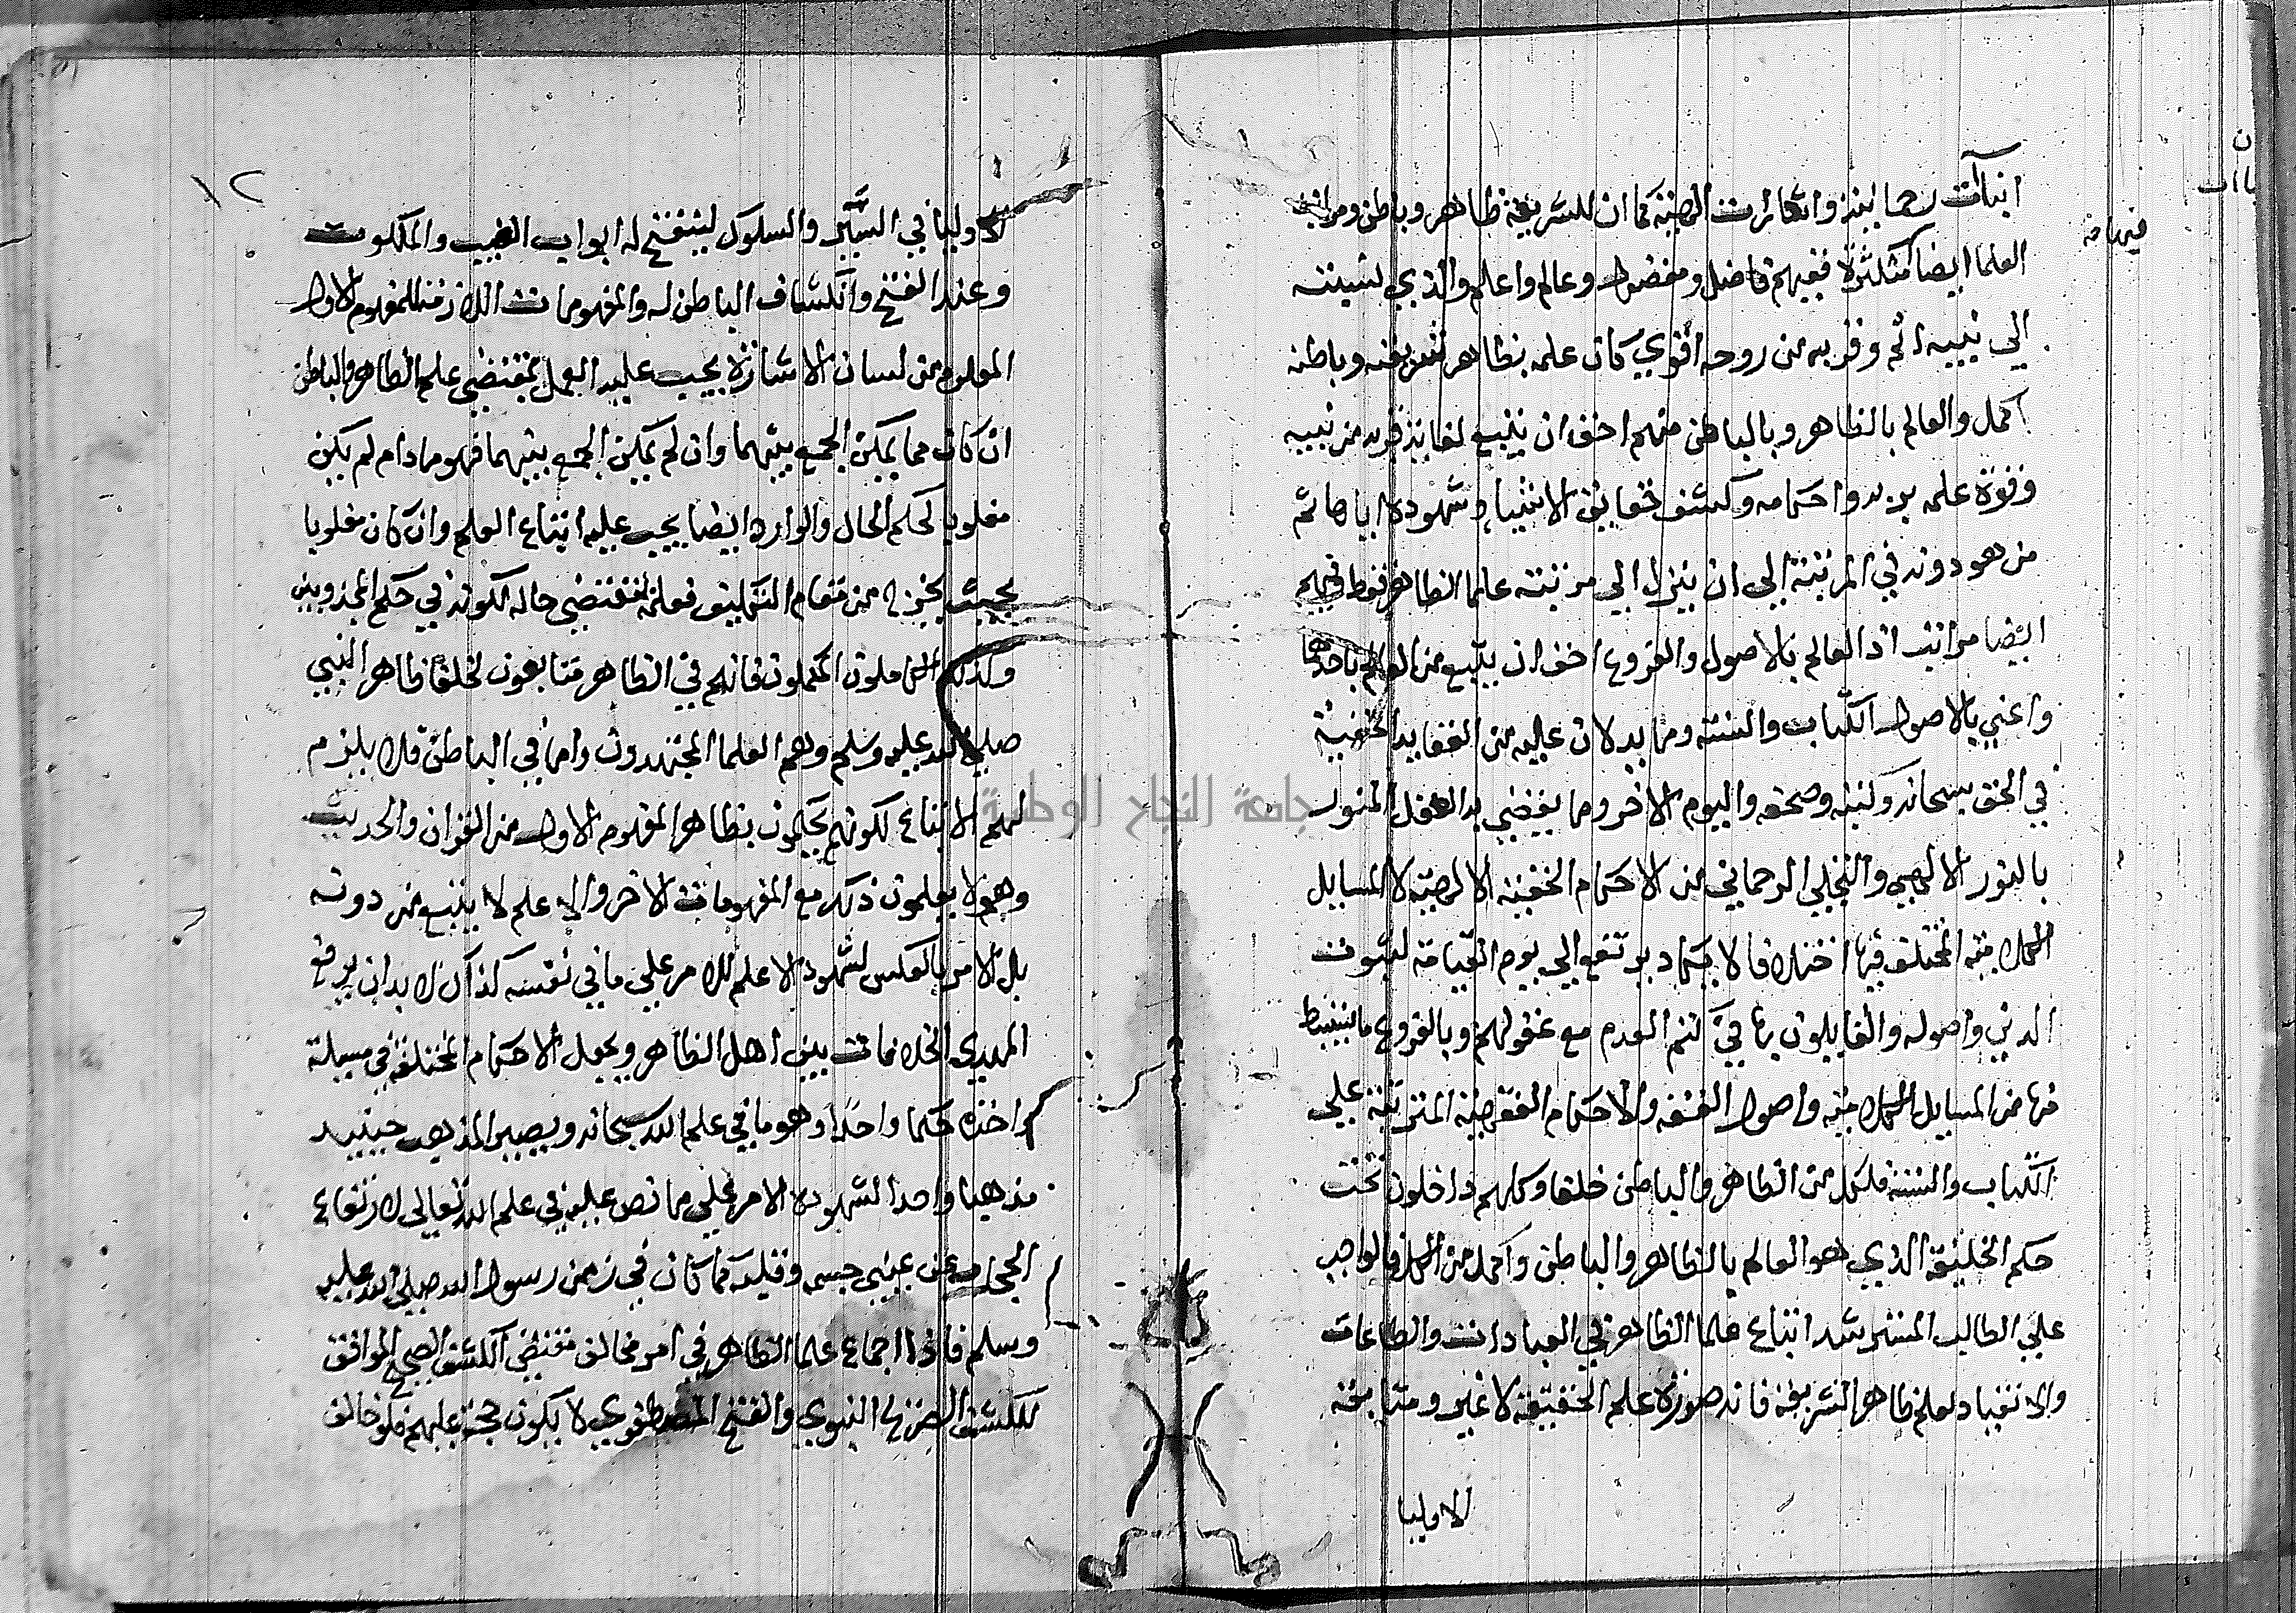 انباآت رحمانية واشارات الهية كما ان للشريعة ظاهر وباطن ومراتب
العلما ايضا متكثرة ففيهم فاضل ومفضول وعالم واعلم والذي نسبته
الي نبيه اتم وقربه من روحه اقوي كان علمه بظاهر شريعته وباطنه
اكمل والعالم بالظاهر وبالباطن منهم احق ان يتبع لغاية قربه من نبيه
وقوة علمه بربه واحكامه وكشف حقايق الاشياء وشهوده اياها ثم
من هو دونه في المرتبة الي ان ينزل الي مرتبة علما الظاهر فقط وفيهم
ايضا مراتب اذ العالم بالاصول والفروع احق ان يتبع من العالم باحدهما
واعني بالاصول الكتاب والسنة وما يدلان عليه من العقايد الحقيقة
في الحق سبحانه وكتبه وصحفه واليوم الاخر وما يقضي به العقل المنور
بالنور الالهي والتجلي الرحماني من الاحكام الحقية الالهية لا المسايل
الكلامية المختلف فيها اختلافا لا يكاد يرتفع الي يوم القيامة لثبوت
الدين واصوله والقايلون بها في كتم العدم مع عقولهم وبالفروع ما يستنبط
منها من المسايل الكلامية واصول الفقه والاحكام الفقهية المترتبة علي
الكتاب والسنة فلكل من الظاهر والباطن خلفا وكلهم داخلون تحت
حكم الخليفة الذي هو العالم بالظاهر والباطن واكمل من الكل فالواجب
علي الطالب المسترشد اتباع علما الظاهر في العبادات والطاعات
والانقياد لعلم ظاهر الشريعة فانه صورة علم الحقيقة لا غير ومتابعة
لاوليا
فيها منه
١٢
الاوليا في السير والسلوك لينفتح له ابواب الغيب والملكوت
وعند الفتح وانكشاف الباطن له والمفهومات اللازمة للمفهوم الاول
المعلوم من لسان الاشارة يجب عليه العمل بمقتضي علم الظاهر والباطن
ان كان مما يمكن الجمع بينهما وان لم يمكن الجمع بينهما فهو ما دام لم يكن
مغلوبا لحكم الحال والوارد ايضا يجب عليه اتباع العلم وان كان مغلوبا
بحيث يخرج من مقام التكليف فعلمه بمقتضي حاله لكونه في حكم المجذوبين
وكذلك الكاملون المكملون فانهم في الظاهر متابعون لخلفا ظاهر النبي
صلي الله عليه وسلم وهم العلما المجتهدون واما في الباطن فلا يلزم
لهم الاتباع لكونهم يحكمون بظاهر المفهوم الاول من القران والحديث
وهولا يعلمون ذلك مع المفهومات الاخر والاعلم لا يتبع من دونه
بل الامر بالعكس لشهود الاعلم للامر علي ما في نفسه لذا كان لا بد ان يرفع
المهدي الخلافات بين اهل الظاهر ويجعل الاحكام المختلفة في مسيلة
واحدة حكما واحدا وهو ما في علم الله سبحانه ويصير المذهب حينيد
مذهبا واحدا لشهوده الامر علي ما نص عليه في علم الله تعالي لارتفاع
الحجاب عن عيني جسمه وقلبه كما كان في زمن رسول الله صلي الله عليه
وسلم فاذا اجماع علما الظاهر في امر مخالف مقتضي الكشف الصحيح الموافق
للكشف الصريح النبوي والفتح المصطفوي لا يكون حجة عليهم فلو خالف
جامعة النجاح الوطنية